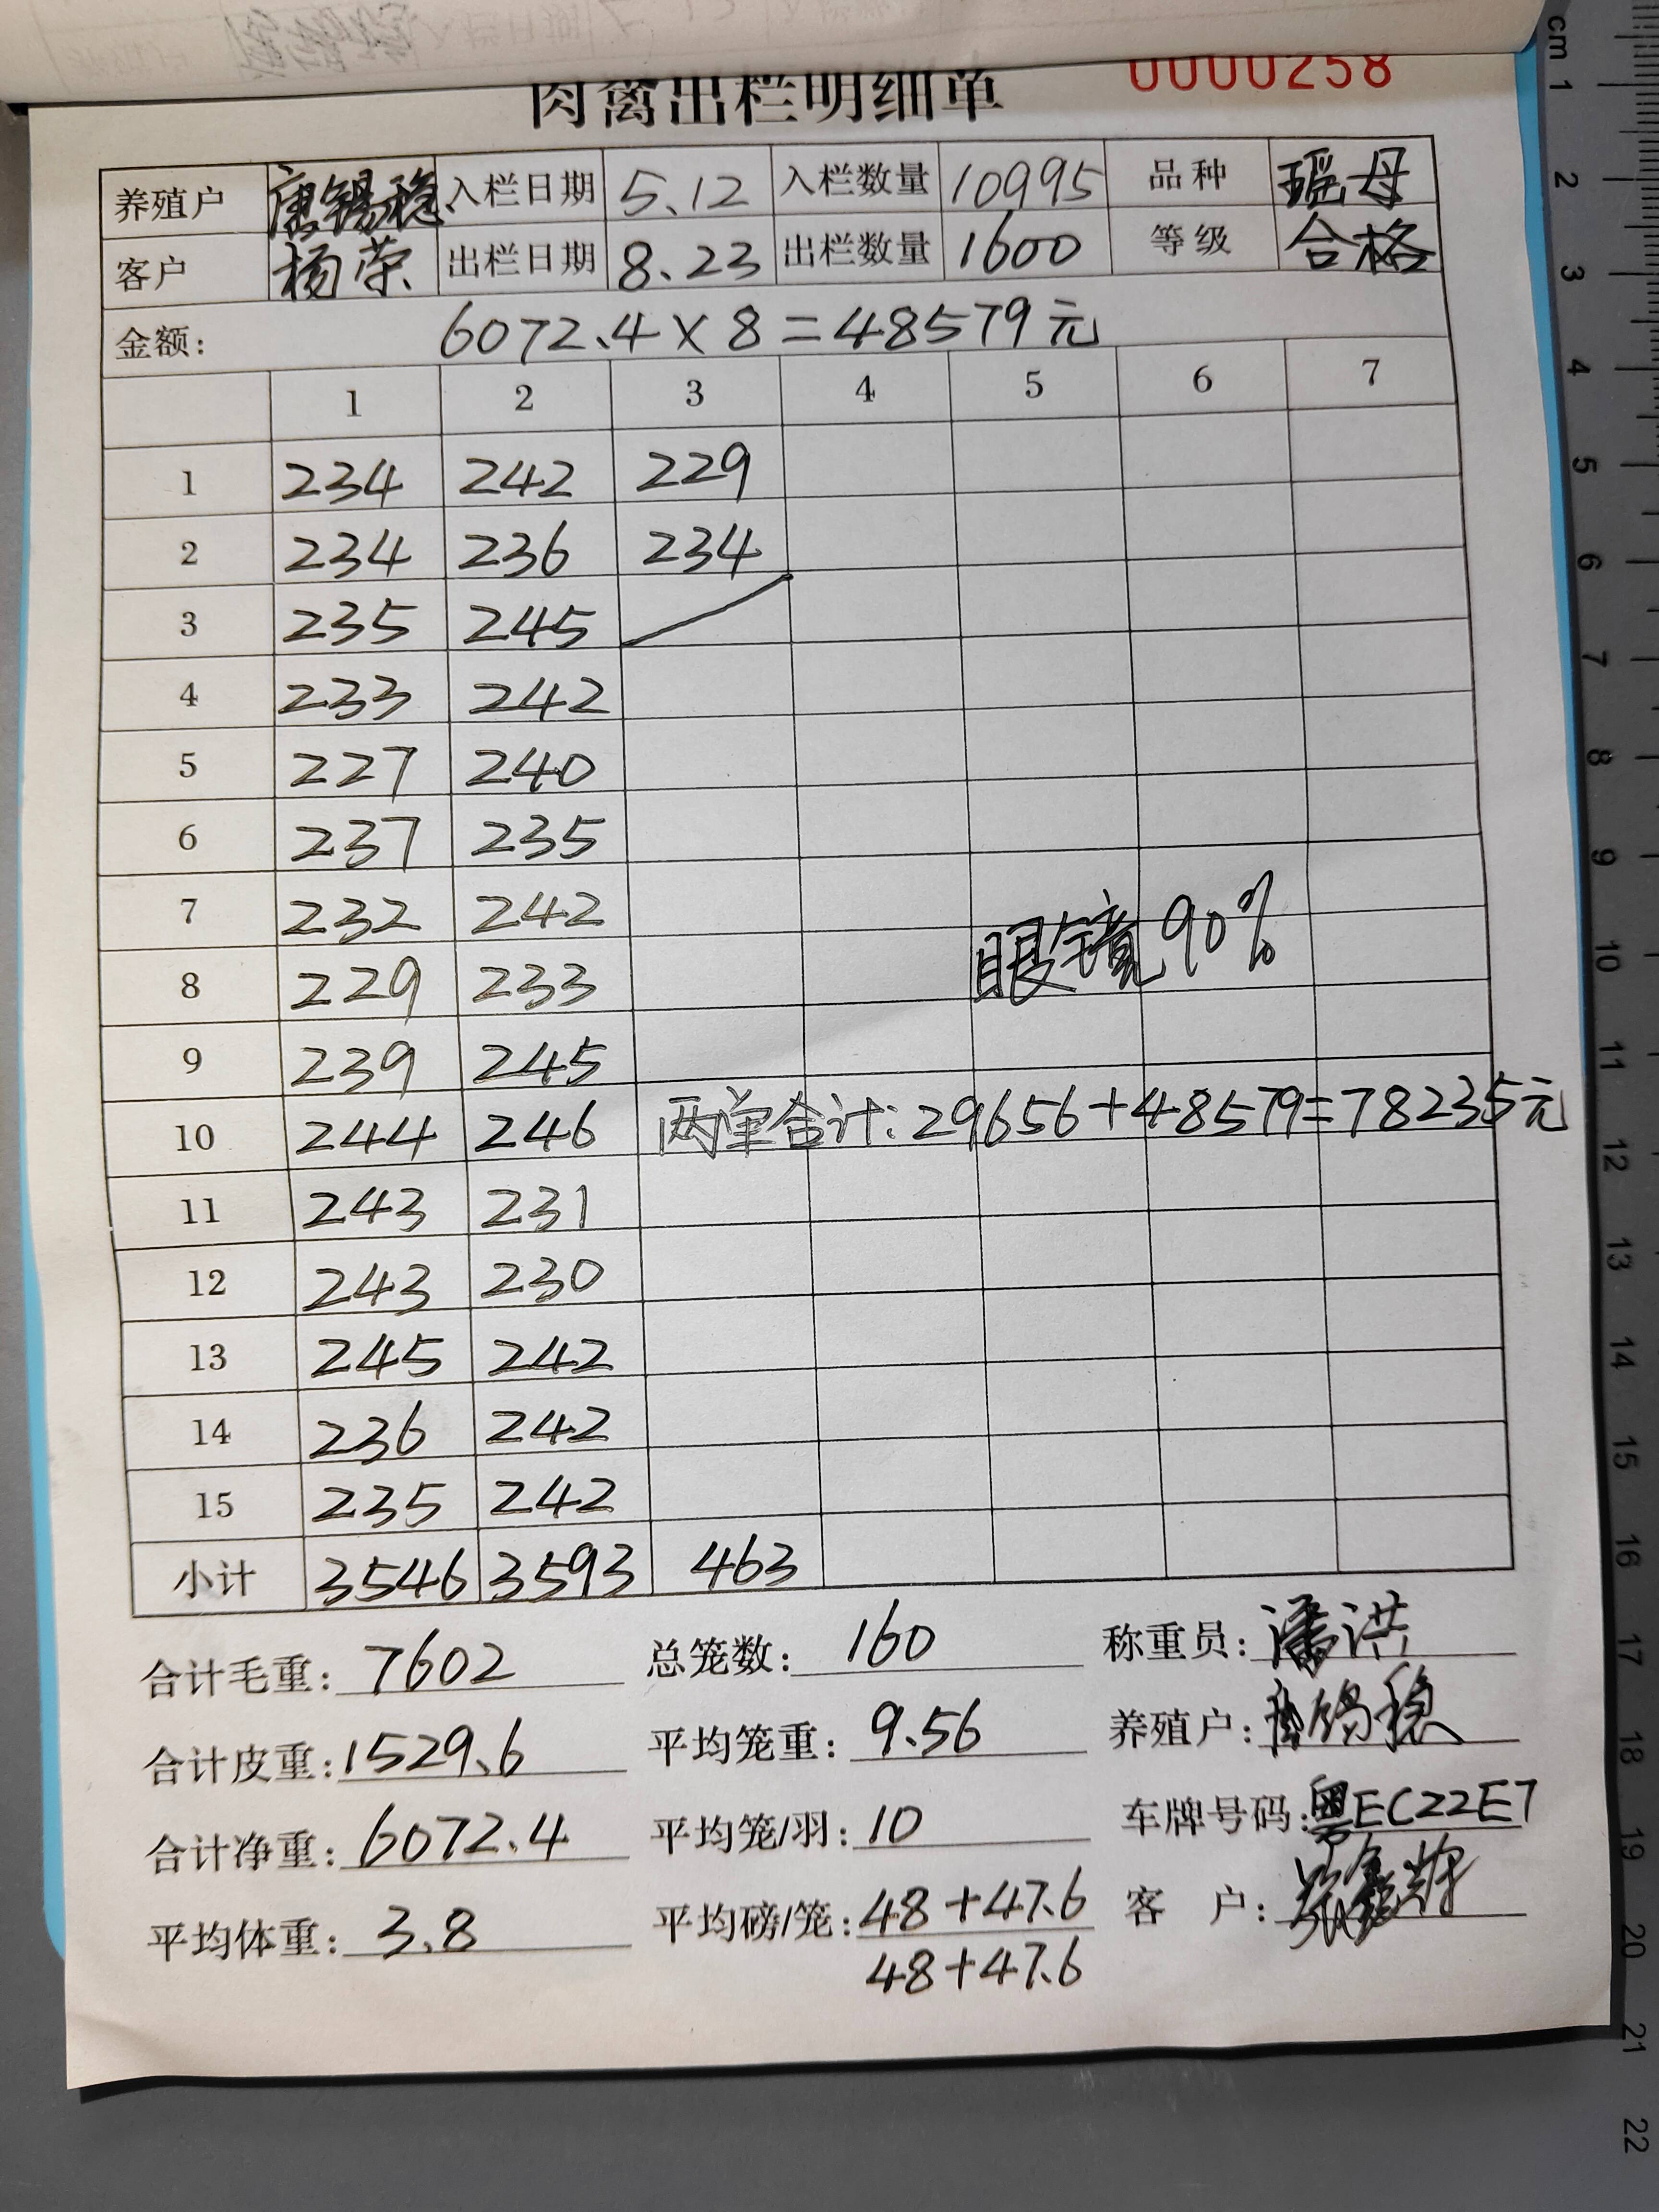 肉禽出栏明细单 0000258
养殖户 唐锡稳 入栏日期 5.12 入栏数量 10995 品种 瑶母
客户 杨荣 出栏日期 8.23 出栏数量 1600 等级 合格
金额: 6072.4×8=48579元
1 2 3 4 5 6 7
1 234 242 229
2 234 236 234
3 235 245
4 233 242
5 227 240
6 237 235
7 232 242
眼镜90%
8 229 233
9 239 245
10 244 246 两单合计:29656+48579=78235元
11 243 231
12 243 230
13 245 242
14 236 242
15 235 242
小计 3546 3593 463
合计毛重: 7602 总笼数: 160 称重员: 潘洪
合计皮重: 1529.6 平均笼重: 9.56 养殖户: 唐锡稳
合计净重: 6072.4 平均笼/羽: 10 车牌号码: 粤EC22E7
平均体重: 3.8 平均磅/笼: 48+47.6 客户:
48+47.6
cm 1 2 3 4 5 6 7 8 9 10 11 12 13 14 15 16 17 18 19 20 21 22